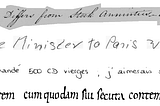 Differs from Stock Annuities
Minister to Paris
500 CD vierges, j'aimerais
cumquodam siu secuta contem